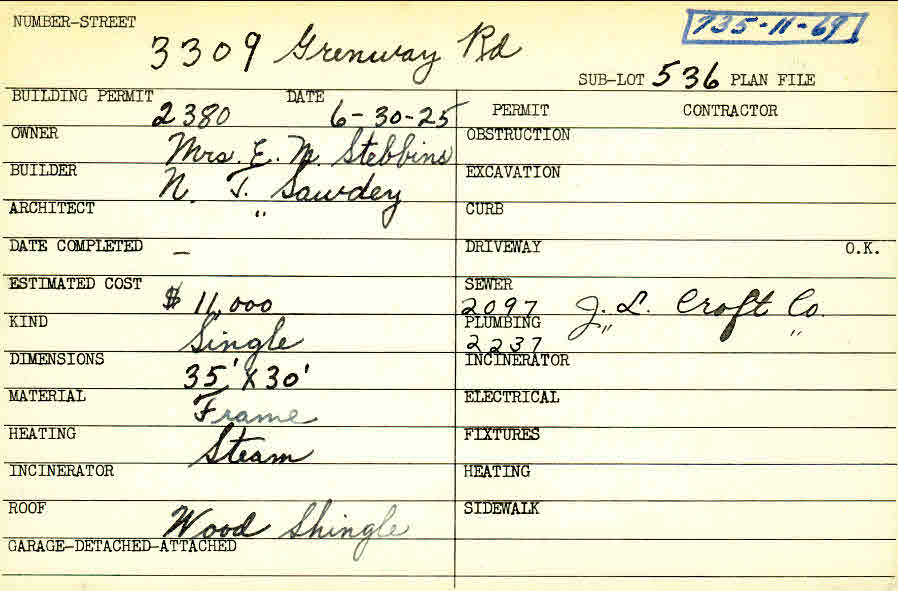 NUMBER-STREET
735-11-69
3309 Grenway Rd
SUB-LOT 536 PLAN FILE
BUILDING PERMIT 2380 DATE 6-30-25
OWNER Mrs. E. M. Stebbins
BUILDER N. T. Sawdey
ARCHITECT "
DATE COMPLETED –
ESTIMATED COST $ 11,000
KIND Single
DIMENSIONS 35' X 30'
MATERIAL Frame
HEATING Steam
INCINERATOR
ROOF Wood Shingle
GARAGE-DETACHED-ATTACHED
PERMIT CONTRACTOR
OBSTRUCTION
EXCAVATION
CURB
DRIVEWAY O.K.
SEWER 2097 J. L. Croft Co.
PLUMBING 2237 " "
INCINERATOR
ELECTRICAL
FIXTURES
HEATING
SIDEWALK